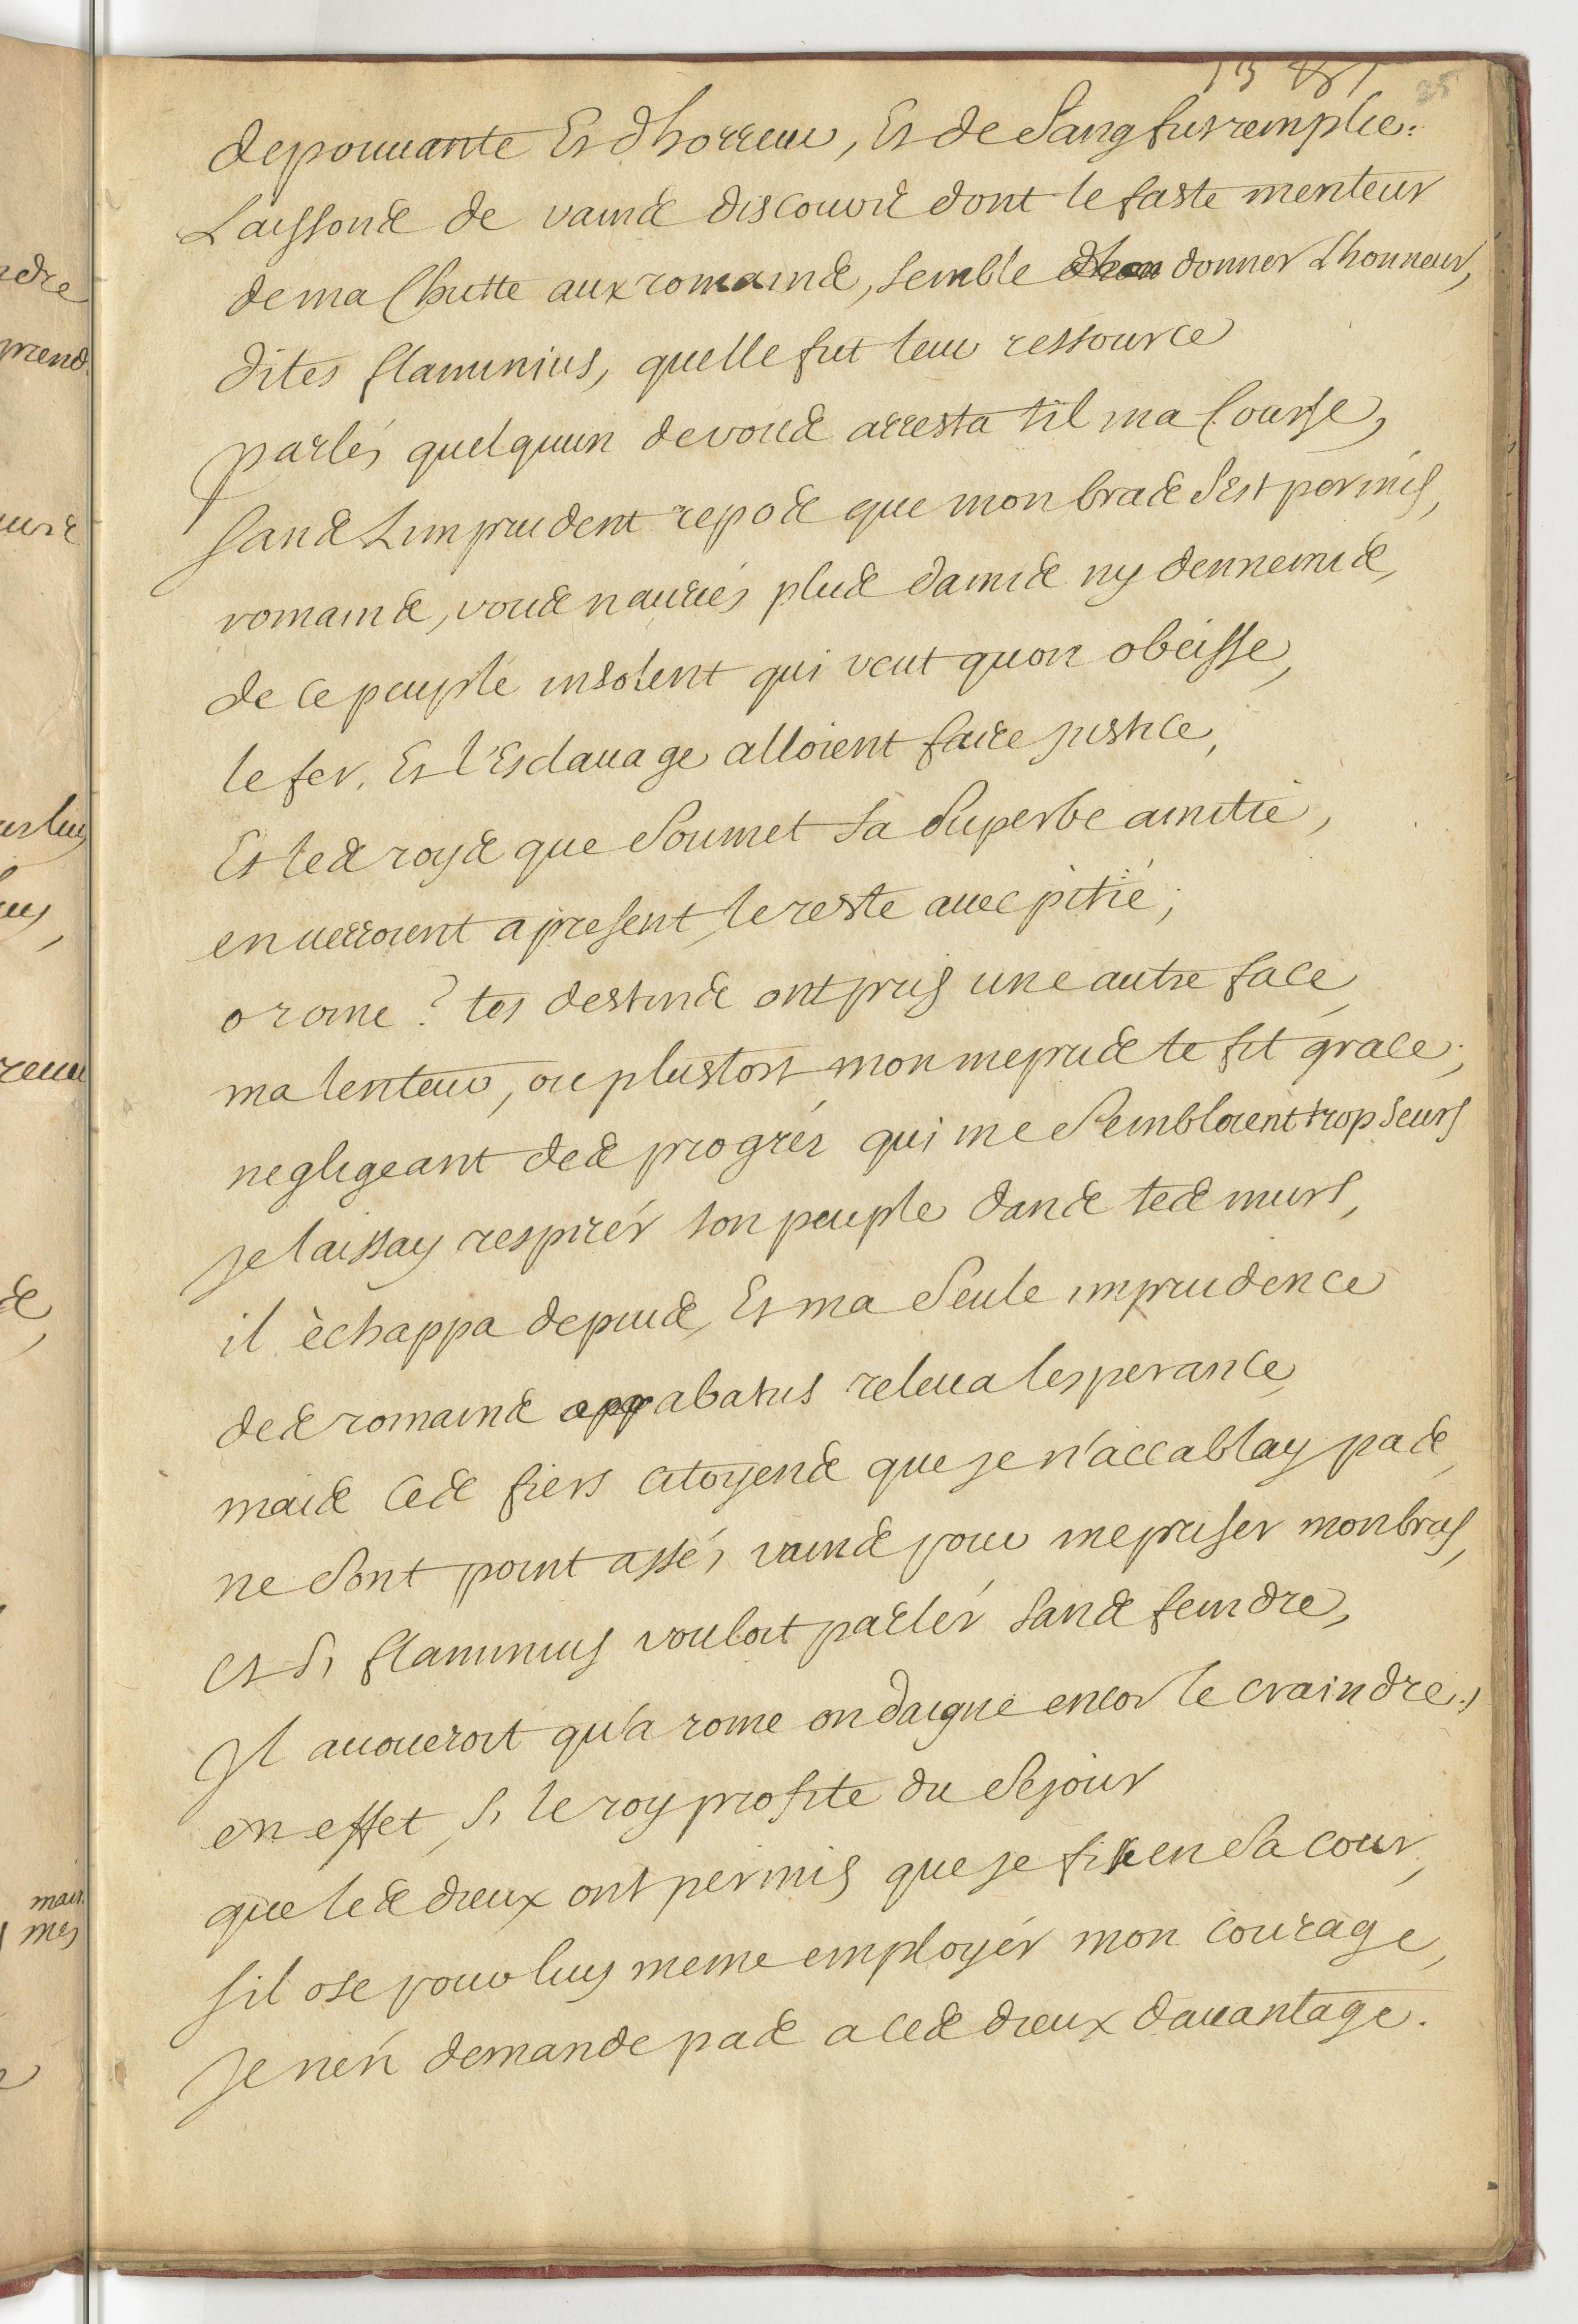 35
depouuante Et dhorreur, Et de Sang fut remplie.
Laissons de vains discours dont le faste menteur
de ma Chutte aux romains, semble donner Lhonneur,
dites flaminius, quelle fut leur ressource
parlés quelquun de vous arresta til ma Course,
sans Limprudent repos que mon bras Sest permis,
romains, vous nauriés plus damis ny dennemis,
de ce peuple insolent qui veut quon obeisse,
le fer, Et l'Esclauage alloient faire justice,
Et les roys que Soumet sa Superbe amitié,
en uerroient a present le reste auec pitié;
o rome? tes destins ont pris une autre face,
ma lenteur, ou plustost mon mepris te fit grace;
negligeant des progrés qui me Sembloient trop seurs
je laissay respirér ton peuple dans tes murs,
il èchappa depuis, Et ma Seule imprudence
des romains abatus releua lesperance,
mais Ces fiers Citoyens que je n'accablay pas,
ne Sont point assés vains pour mepriser mon bras,
et Si flaminius vouloit parlér sans feindre,
Il auoueroit qu'a rome on daigne encor le craindre.
en effet Si le roy profite du Sejour
que les dieux ont permis que je fisse en Sa cour,
sil ose pour luy meme employér mon courage,
Je nen demande pas a ces dieux dauantage.